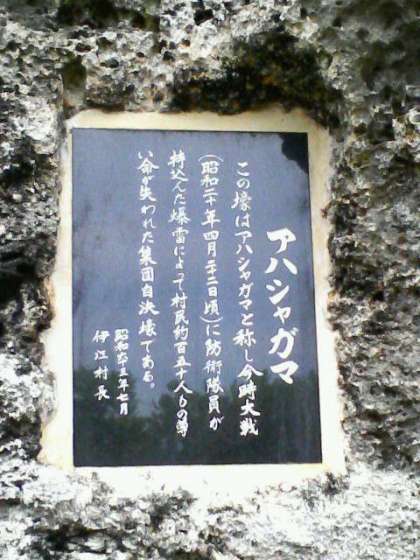 アハシャガマ
この壕はアハシャガマと称し今時大戦
(昭和二十年四月二十二日頃)に防衛隊員が
持込んだ爆雷によって村民約百五十人もの尊
い命が失われた集団自決壕である。
昭和六三年七月
伊江村長